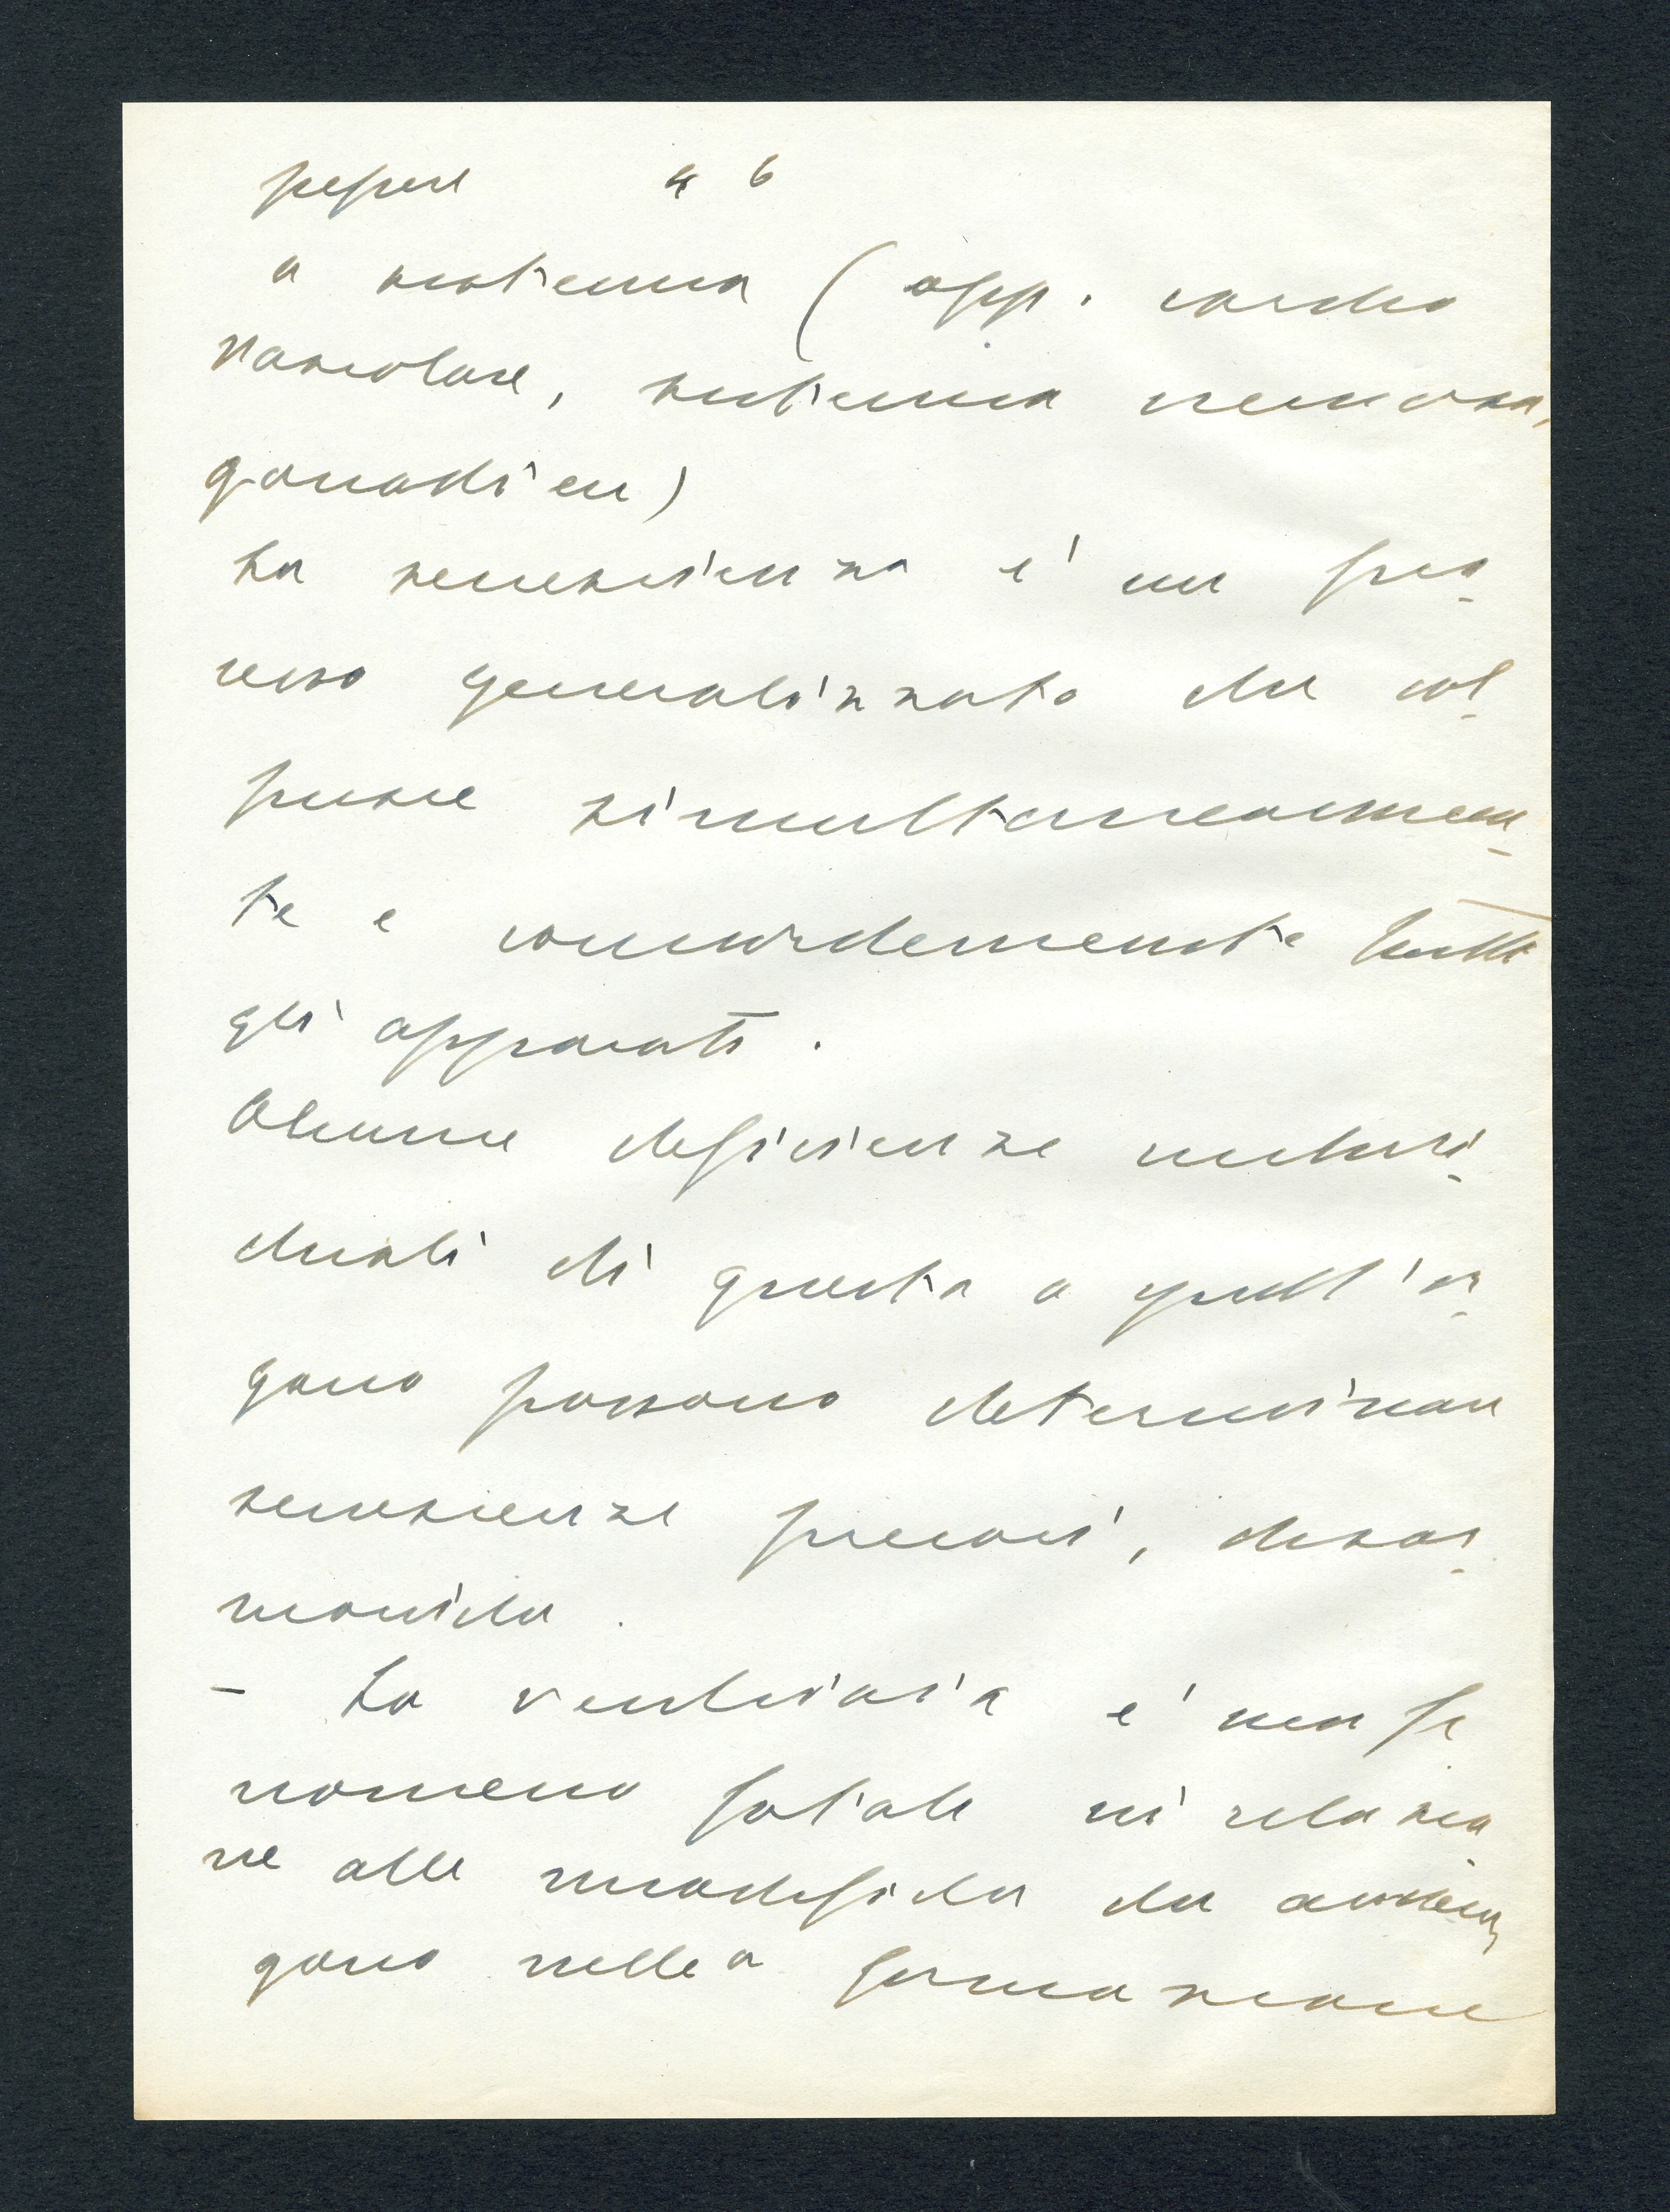 pepere 4 6
o sistema (app. cardio
vascolare, sistema nervoso,
gonadi ecc)
La senescienza e' un pro-
cesso generalizzato che col-
pisce simultaneamen-
te e concordemente tutti
gli apparati.
Alcune deficienze indivi-
duali di questo o quell'or-
gano possono determinare
senescenze precoci, disar-
moniche.
- La vecchiaia e' un fe
nomeno fatale in relazio
ne alle modifiche che avven
gono nella formazione